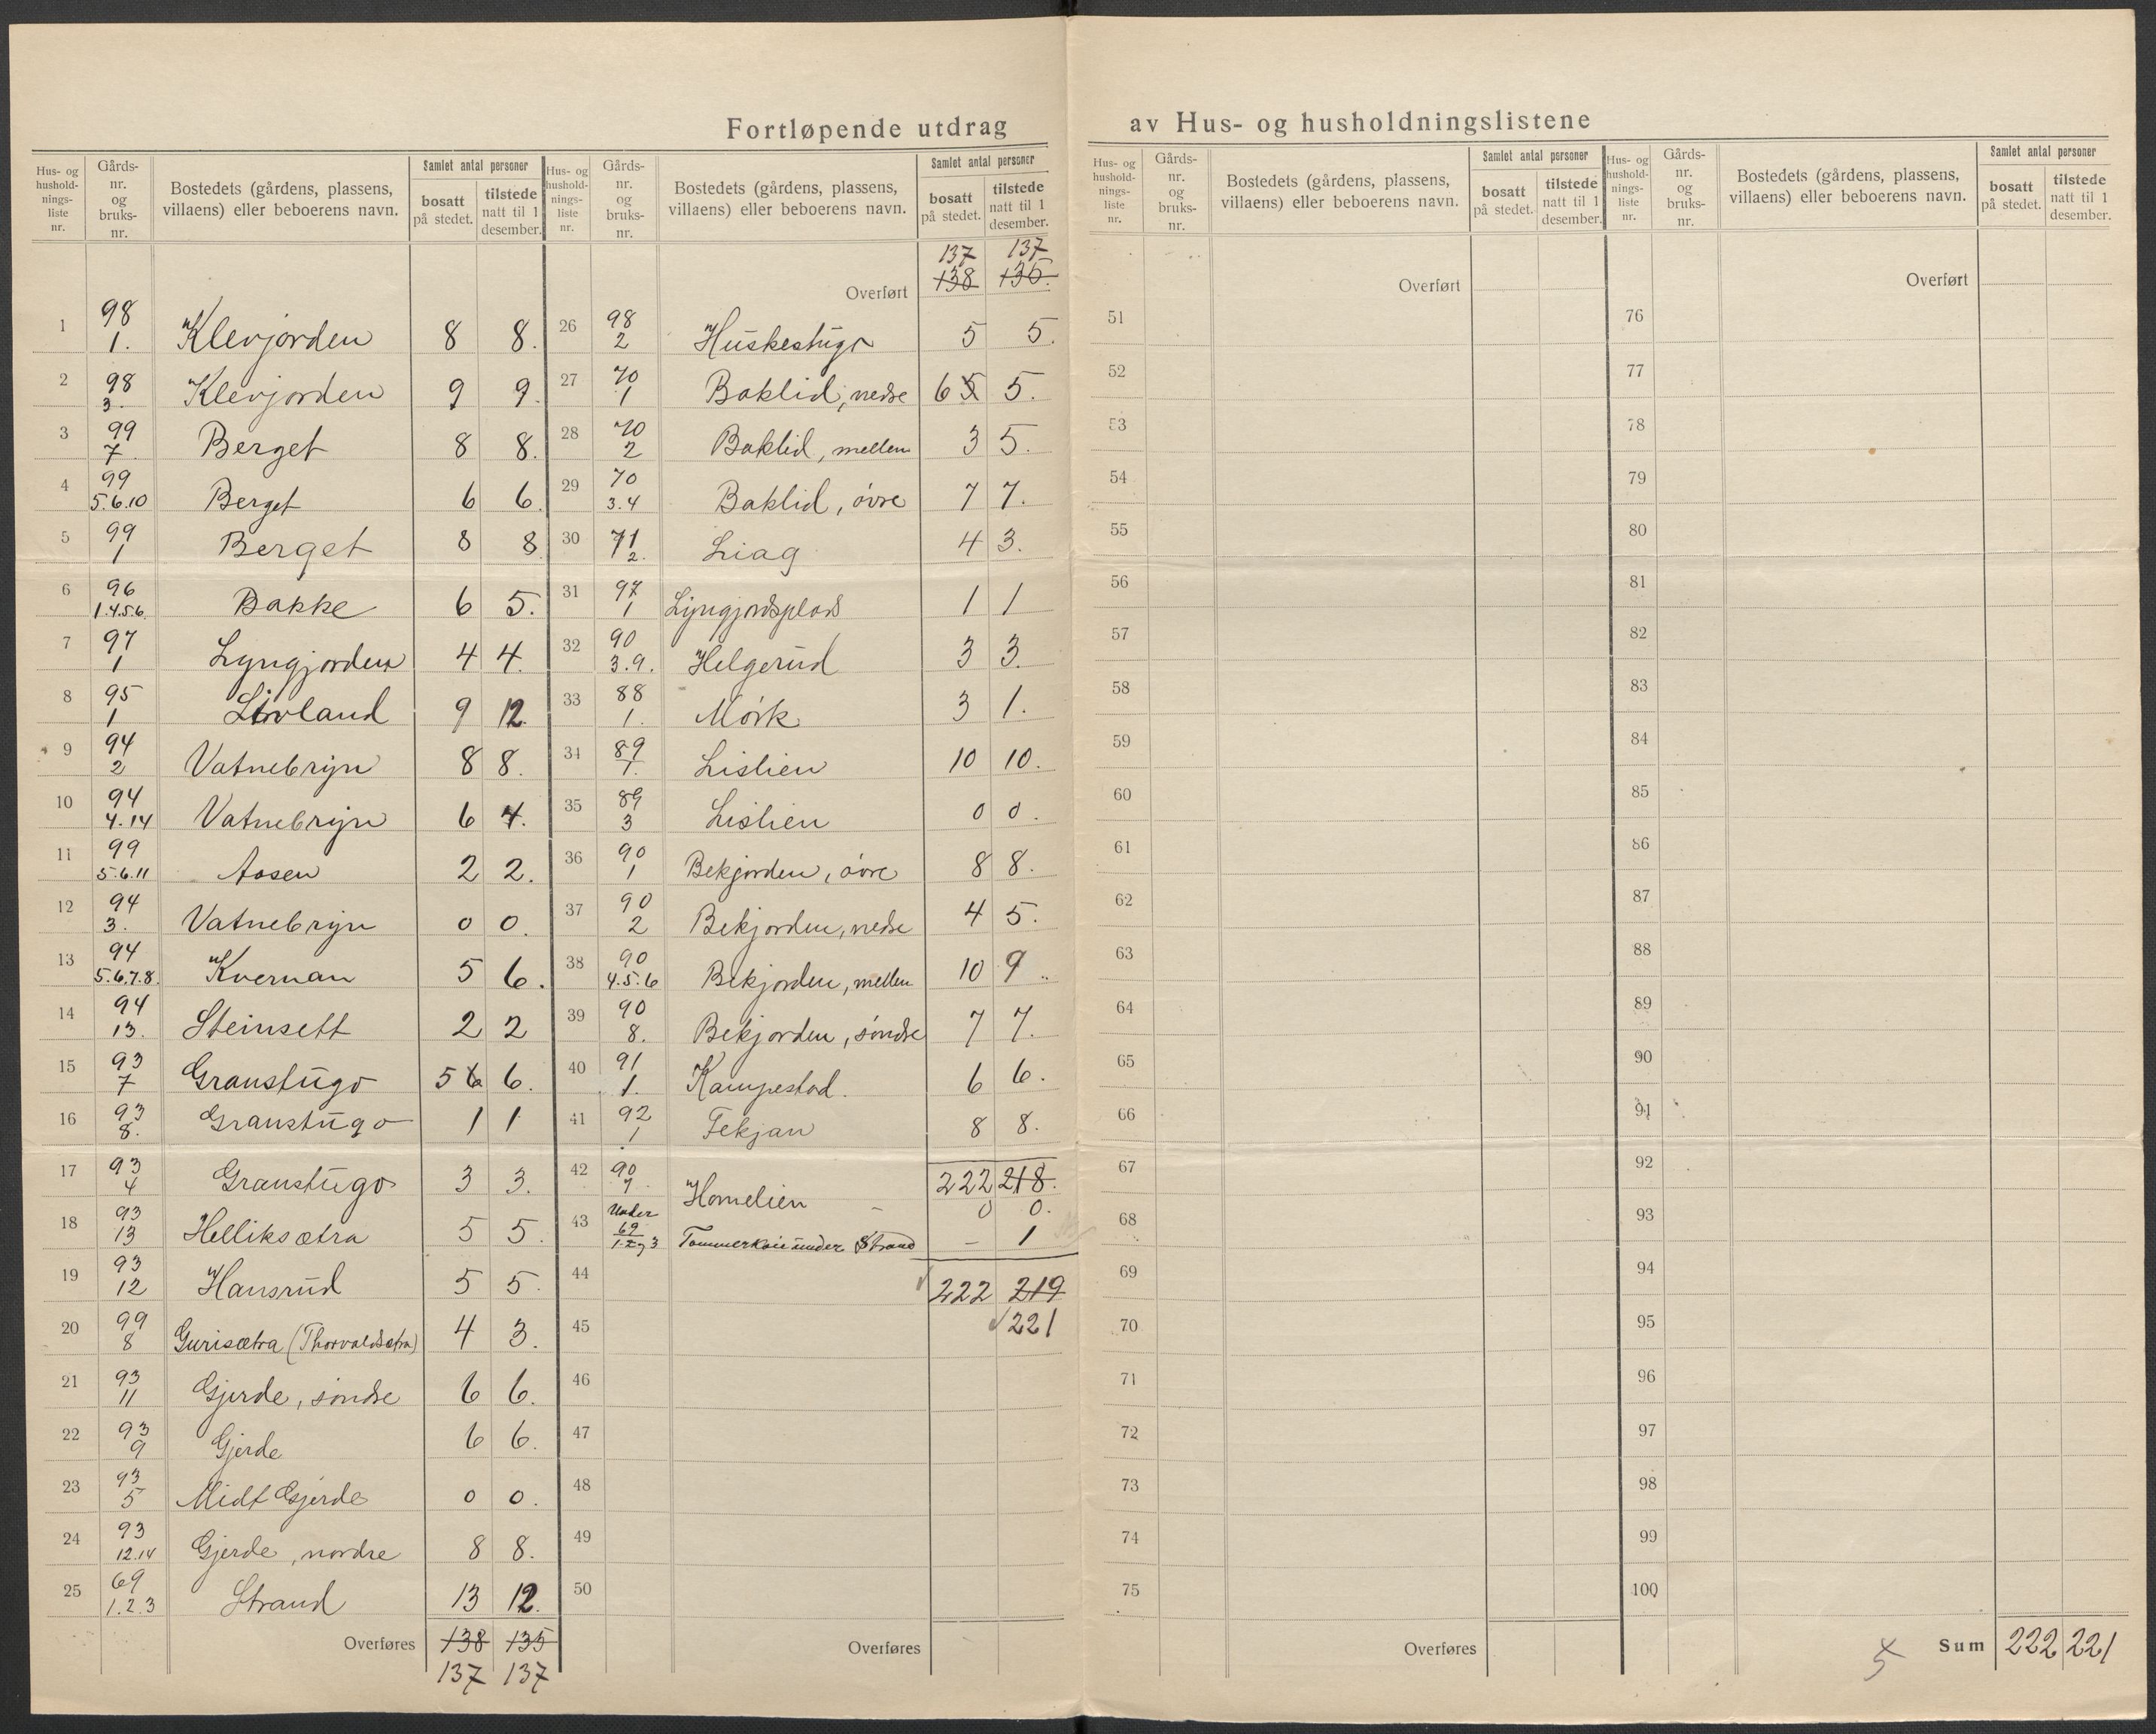 Fortløpende utdrag av Hus- og husholdningslistene
Hus- og hushold-nings-liste nr. Gårds-nr. og bruks-nr. Bostedets (gårdens, plassens, villaens) eller beboerens navn. Samlet antal personer bosatt på stedet. tilstede natt til 1 desember.
1 98 1. Klevjorden 8 8.
2 98 3. Klevjorden 9 9.
3 99 7 Berget 8 8.
4 99 5.6.10 Berget 6 6.
5 99 1 Berget 8 8
6 96 1.4.5.6. Bakke 6 5.
7 97 1 Lyngjorden 4 4.
8 95 1 Livland 9 12.
9 94 2 Vatnebryn 8 8.
10 94 4.14 Vatnebryn 6 4.
11 99 5.6.11 Aasen 2 2.
12 94 3. Vatnebryn 0 0.
13 94 5.6.7.8. Kvernan 5 6.
14 94 13. Steinsett 2 2
15 93 7 Granstugo 5 6 6.
16 93 8. Granstugo 1 1
17 93 4 Granstugo 3 3.
18 93 13 Helliksætra 5 5.
19 93 12 Hansrud 5 5.
20 99 8 Gurisætra (Thorvaldsætra) 4 3.
21 93 11 Gjerde, søndre 6 6.
22 93 9 Gjerde 6 6.
23 93 5 Midt Gjerde 0 0.
24 93 12.14 Gjerde, nordre 8 8.
25 69 1.2.3 Strand 13 12.
Overføres 138 135
137 137
Hus- og hushold-nings-liste nr. Gårds-nr. og bruks-nr. Bostedets (gårdens, plassens, villaens) eller beboerens navn. Samlet antal personer bosatt på stedet. tilstede natt til 1 desember.
137 137
Overført 138 135.
26 98 2 Huskestugo 5 5.
27 70 1 Baklid, nedre 6 5 5.
28 70 2 Baklid, mellem 3 5.
29 70 3.4 Baklid, øvre 7 7.
30 71 2. Liag 4 3.
31 97 1 Lyngjordsplads 1 1
32 90 3.9. Helgerud 3 3.
33 88 1. Mørk 3 1.
34 89 1. Lislien 10 10.
35 89 3 Lislien 0 0.
36 90 1 Bekjorden, øvre 8 8.
37 90 2 Bekjorden, nedre 4 5.
38 90 4.5.6 Bekjorden, mellem 10 9.
39 90 8. Bekjorden, søndre 7 7.
40 91 1. Kampestad. 6 6.
41 92 1 Tekjan 8 8.
222 218.
42 90 7 Homelien - 0 0.
43 Under 69 1.2 og 3 Tømmerkoie under Strand - 1
44 222 219
45 221
46
47
48
49
50
Overføres
Hus- og hushold-nings-liste nr. Gårds-nr. og bruks-nr. Bostedets (gårdens, plassens, villaens) eller beboerens navn. Samlet antal personer bosatt på stedet. tilstede natt til 1 desember.
Overført
51
52
53
54
55
56
57
58
59
60
61
62
63
64
65
66
67
68
69
70
71
72
73
74
75
Overføres
Hus- og hushold-nings-liste nr. Gårds-nr. og bruks-nr. Bostedets (gårdens, plassens, villaens) eller beboerens navn. Samlet antal personer bosatt på stedet. tilstede natt til 1 desember.
Overført
76
77
78
79
80
81
82
83
84
85
86
87
88
89
90
91
92
93
94
95
96
97
98
99
100
Sum 222 221